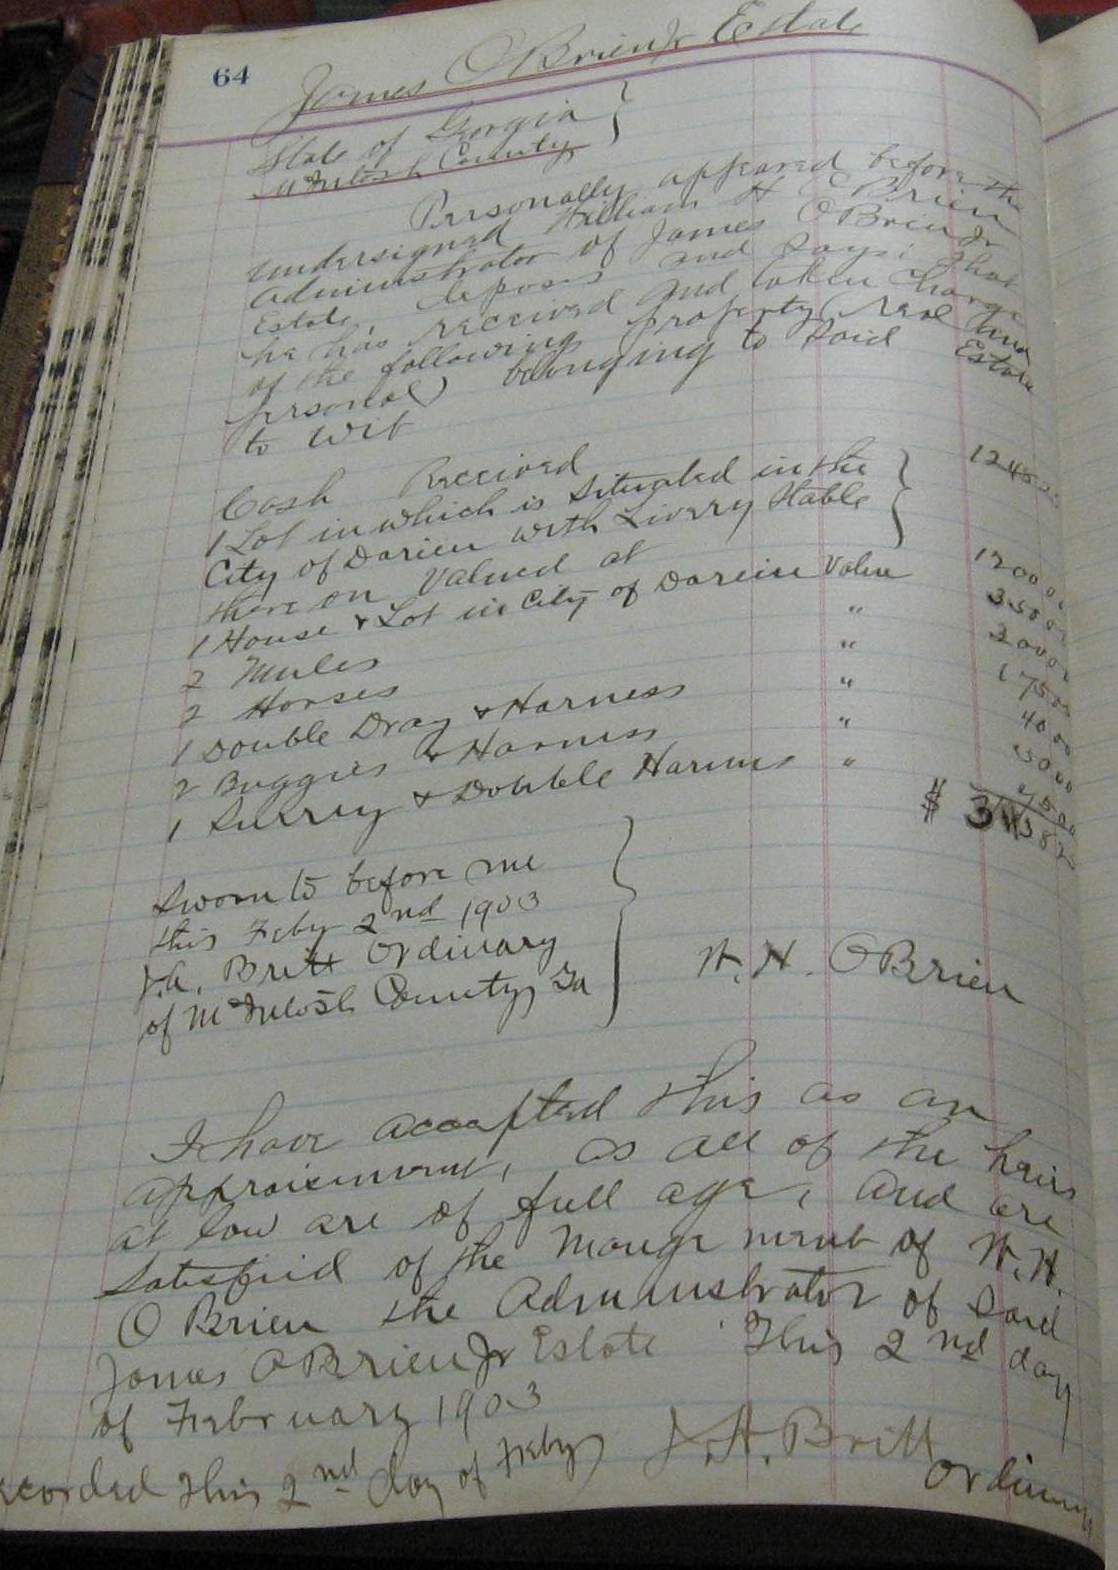 64
James OBrien Jr Estate
State of Georgia
McIntosh County
Personally appeared before the
undersigned William H OBrien
administrator of James OBrien Jr
Estate, deposes and says: that
he has received and taken charge
of the following property (real and
personal) belonging to said Estate
to wit
Cash Received
1 Lot in which is situated in the
City of Darien with Livery Stable
there on Valued at 1200
1 House & Lot in City of Darien Value 350
2 Mules " 200
2 Horses " 175
1 Double Dray & Harness " 40 00
2 Buggies & Harness " 50 00
1 Surrey & Double Harness "
$
Sworn to before me
this Feby 2nd 1903
J.A. Britt Ordinary
of McIntosh County, Ga
W. H. OBrien
I have accepted this as an
appraisement, as all of the heirs
at law are of full age, and are
satisfied of the Management of W.H.
O Brien the Administrator of said
James OBrien Jr Estate This 2nd day
of February 1903
J. A. Britt
Ordinary
ecorded this 2nd day of Feby